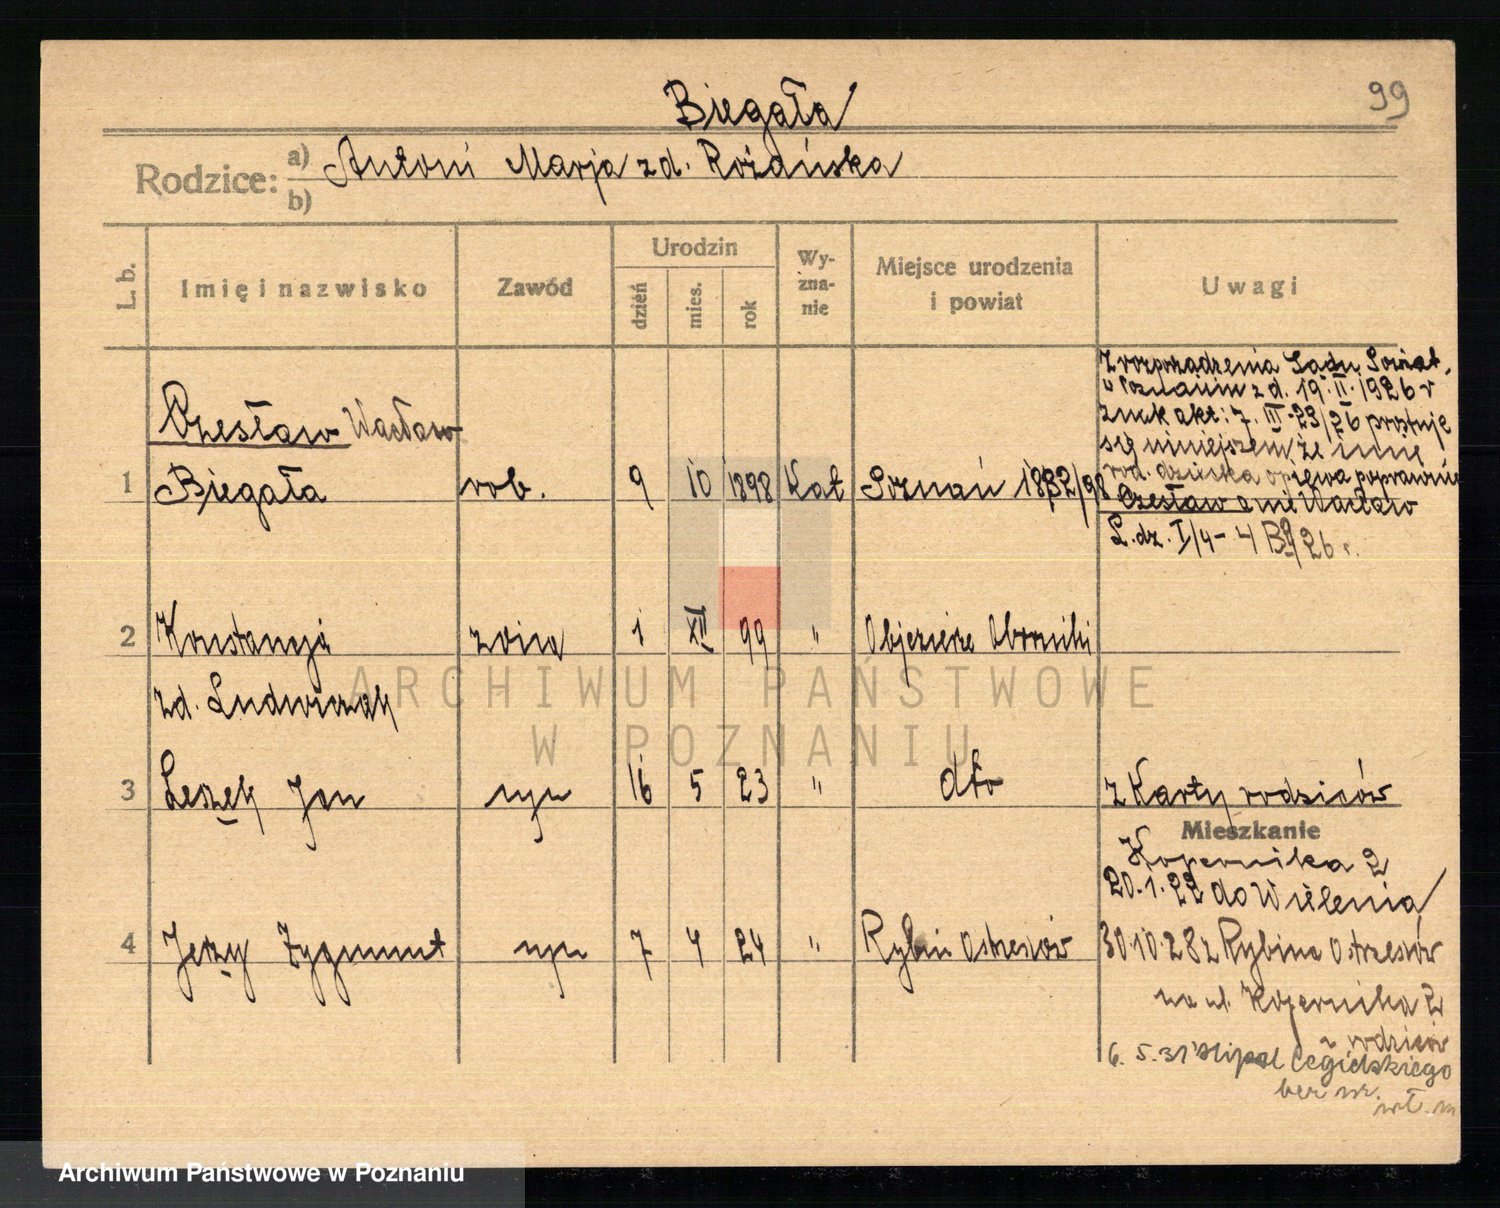 99
Biegała
Rodzice: a) Antoni Marja zd. Rożańska
b)
L. b. Imię i nazwisko Zawód Urodzin dzień mies. rok Wyznanie Miejsce urodzenia i powiat Uwagi
Z rozporządzenia Sądu Powiat.
w Poznaniu z d. 19.II.1926 r
znak akt: 7. III-23/26 prostuje
się niniejszem że imię
rod. dziecka opiewa poprawnie
Czesław a nie Wacław
L.dz. I/4-4 B9/26 r.
Czesław Wacław
1 Biegała rob. 9 10 1898 Kat Poznań 1832/98
2 Konstancja żona 1 XII 99 " Objezierze Oborniki
zd. Ludwiczak
3 Leszek Jan syn 16 5 23 " dto z Karty rodziców
Mieszkanie
Kopernika 2
20.1.22 do Wielenia
4 Jerzy Zygmunt syn 7 4 24 " Rybin Ostrzeszów 30.10.28 z Rybina Ostrzeszów
na ul. Kopernika 2
z rodziców
6.5.31 Hipol Cegielskiego
ARCHIWUM PAŃSTWOWE
W POZNANIU
Archiwum Państwowe w Poznaniu